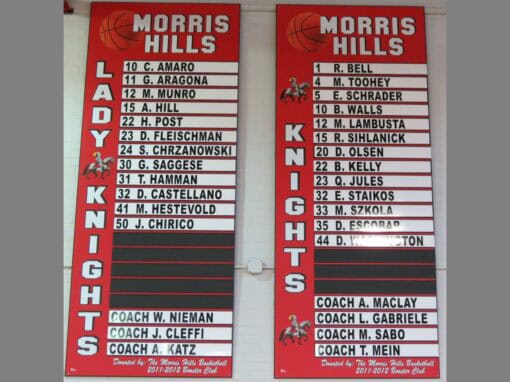 MORRIS
HILLS
LADY KNIGHTS
10 C. AMARO
11 G. ARAGONA
12 M. MUNRO
15 A. HILL
22 H. POST
23 D. FLEISCHMAN
24 S. CHRZANOWSKI
30 G. SAGGESE
31 T. HAMMAN
32 D. CASTELLANO
41 M. HESTEVOLD
50 J. CHIRICO
COACH W. NIEMAN
COACH J. CLEFFI
COACH A. KATZ
Donated by: The Morris Hills Basketball
2011-2012 Booster Club
MORRIS
HILLS
KNIGHTS
1 R. BELL
4 M. TOOHEY
5 E. SCHRADER
10 B. WALLS
12 M. LAMBUSTA
15 R. SIHLANICK
20 D. OLSEN
22 B. KELLY
23 Q. JULES
32 E. STAIKOS
33 M. SZKOLA
35 D. ESCOBAR
44 D. WASHINGTON
COACH A. MACLAY
COACH L. GABRIELE
COACH M. SABO
COACH T. MEIN
Donated by: The Morris Hills Basketball
2011-2012 Booster Club